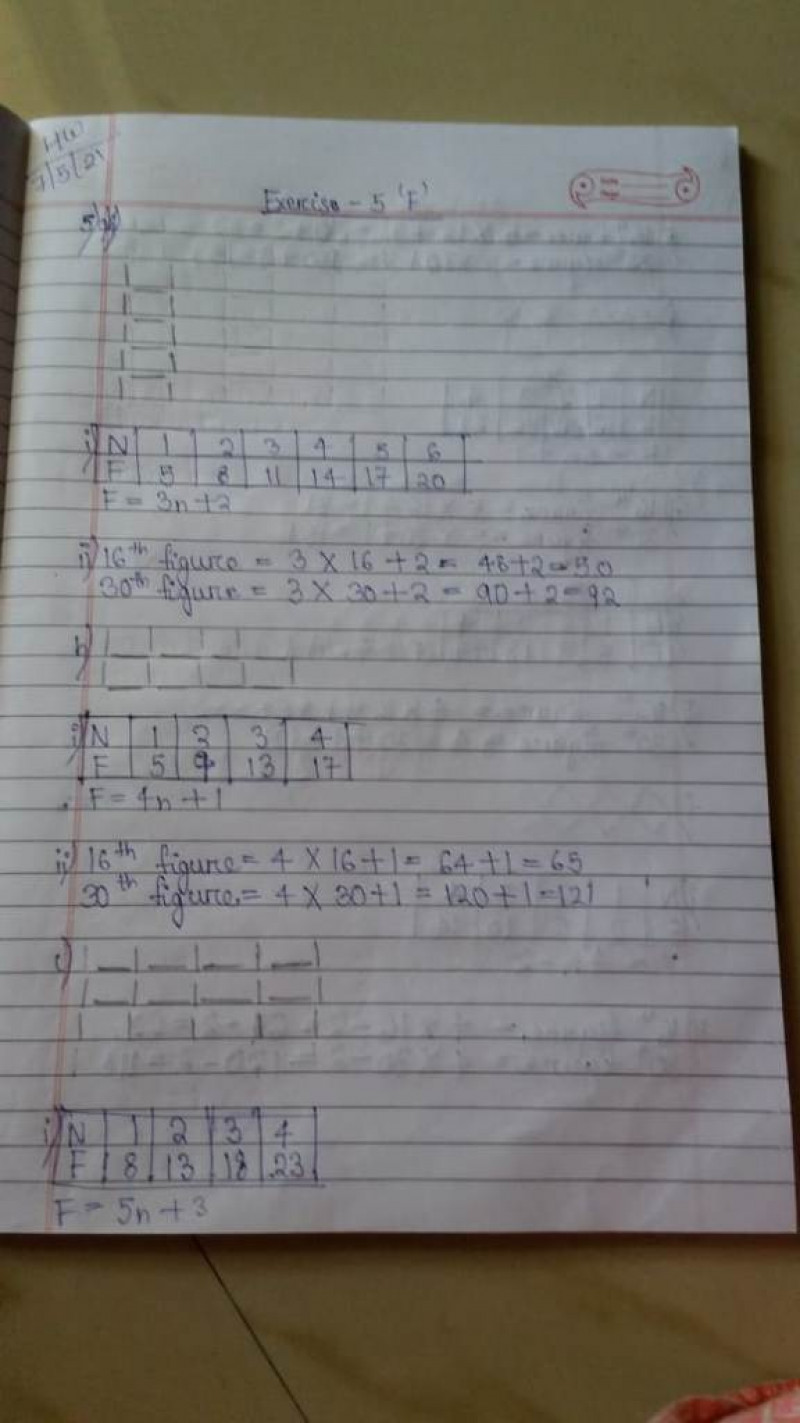 HW
7/5/21
Exercise - 5 'F'
5)
i) N 1 2 3 4 5 6
F 5 8 11 14 17 20
F = 3n+2
ii) 16th figure = 3 X 16 + 2 = 48+2=50
30th figure = 3 X 30+2 = 90+2=92
b)
i) N 1 2 3 4
F 5 9 13 17
F = 4n + 1
ii) 16th figure = 4 X 16+1 = 64+1=65
30th figure. = 4 X 30+1 = 120+1=121
c)
i) N 1 2 3 4
F 8 13 18 23
F = 5n + 3